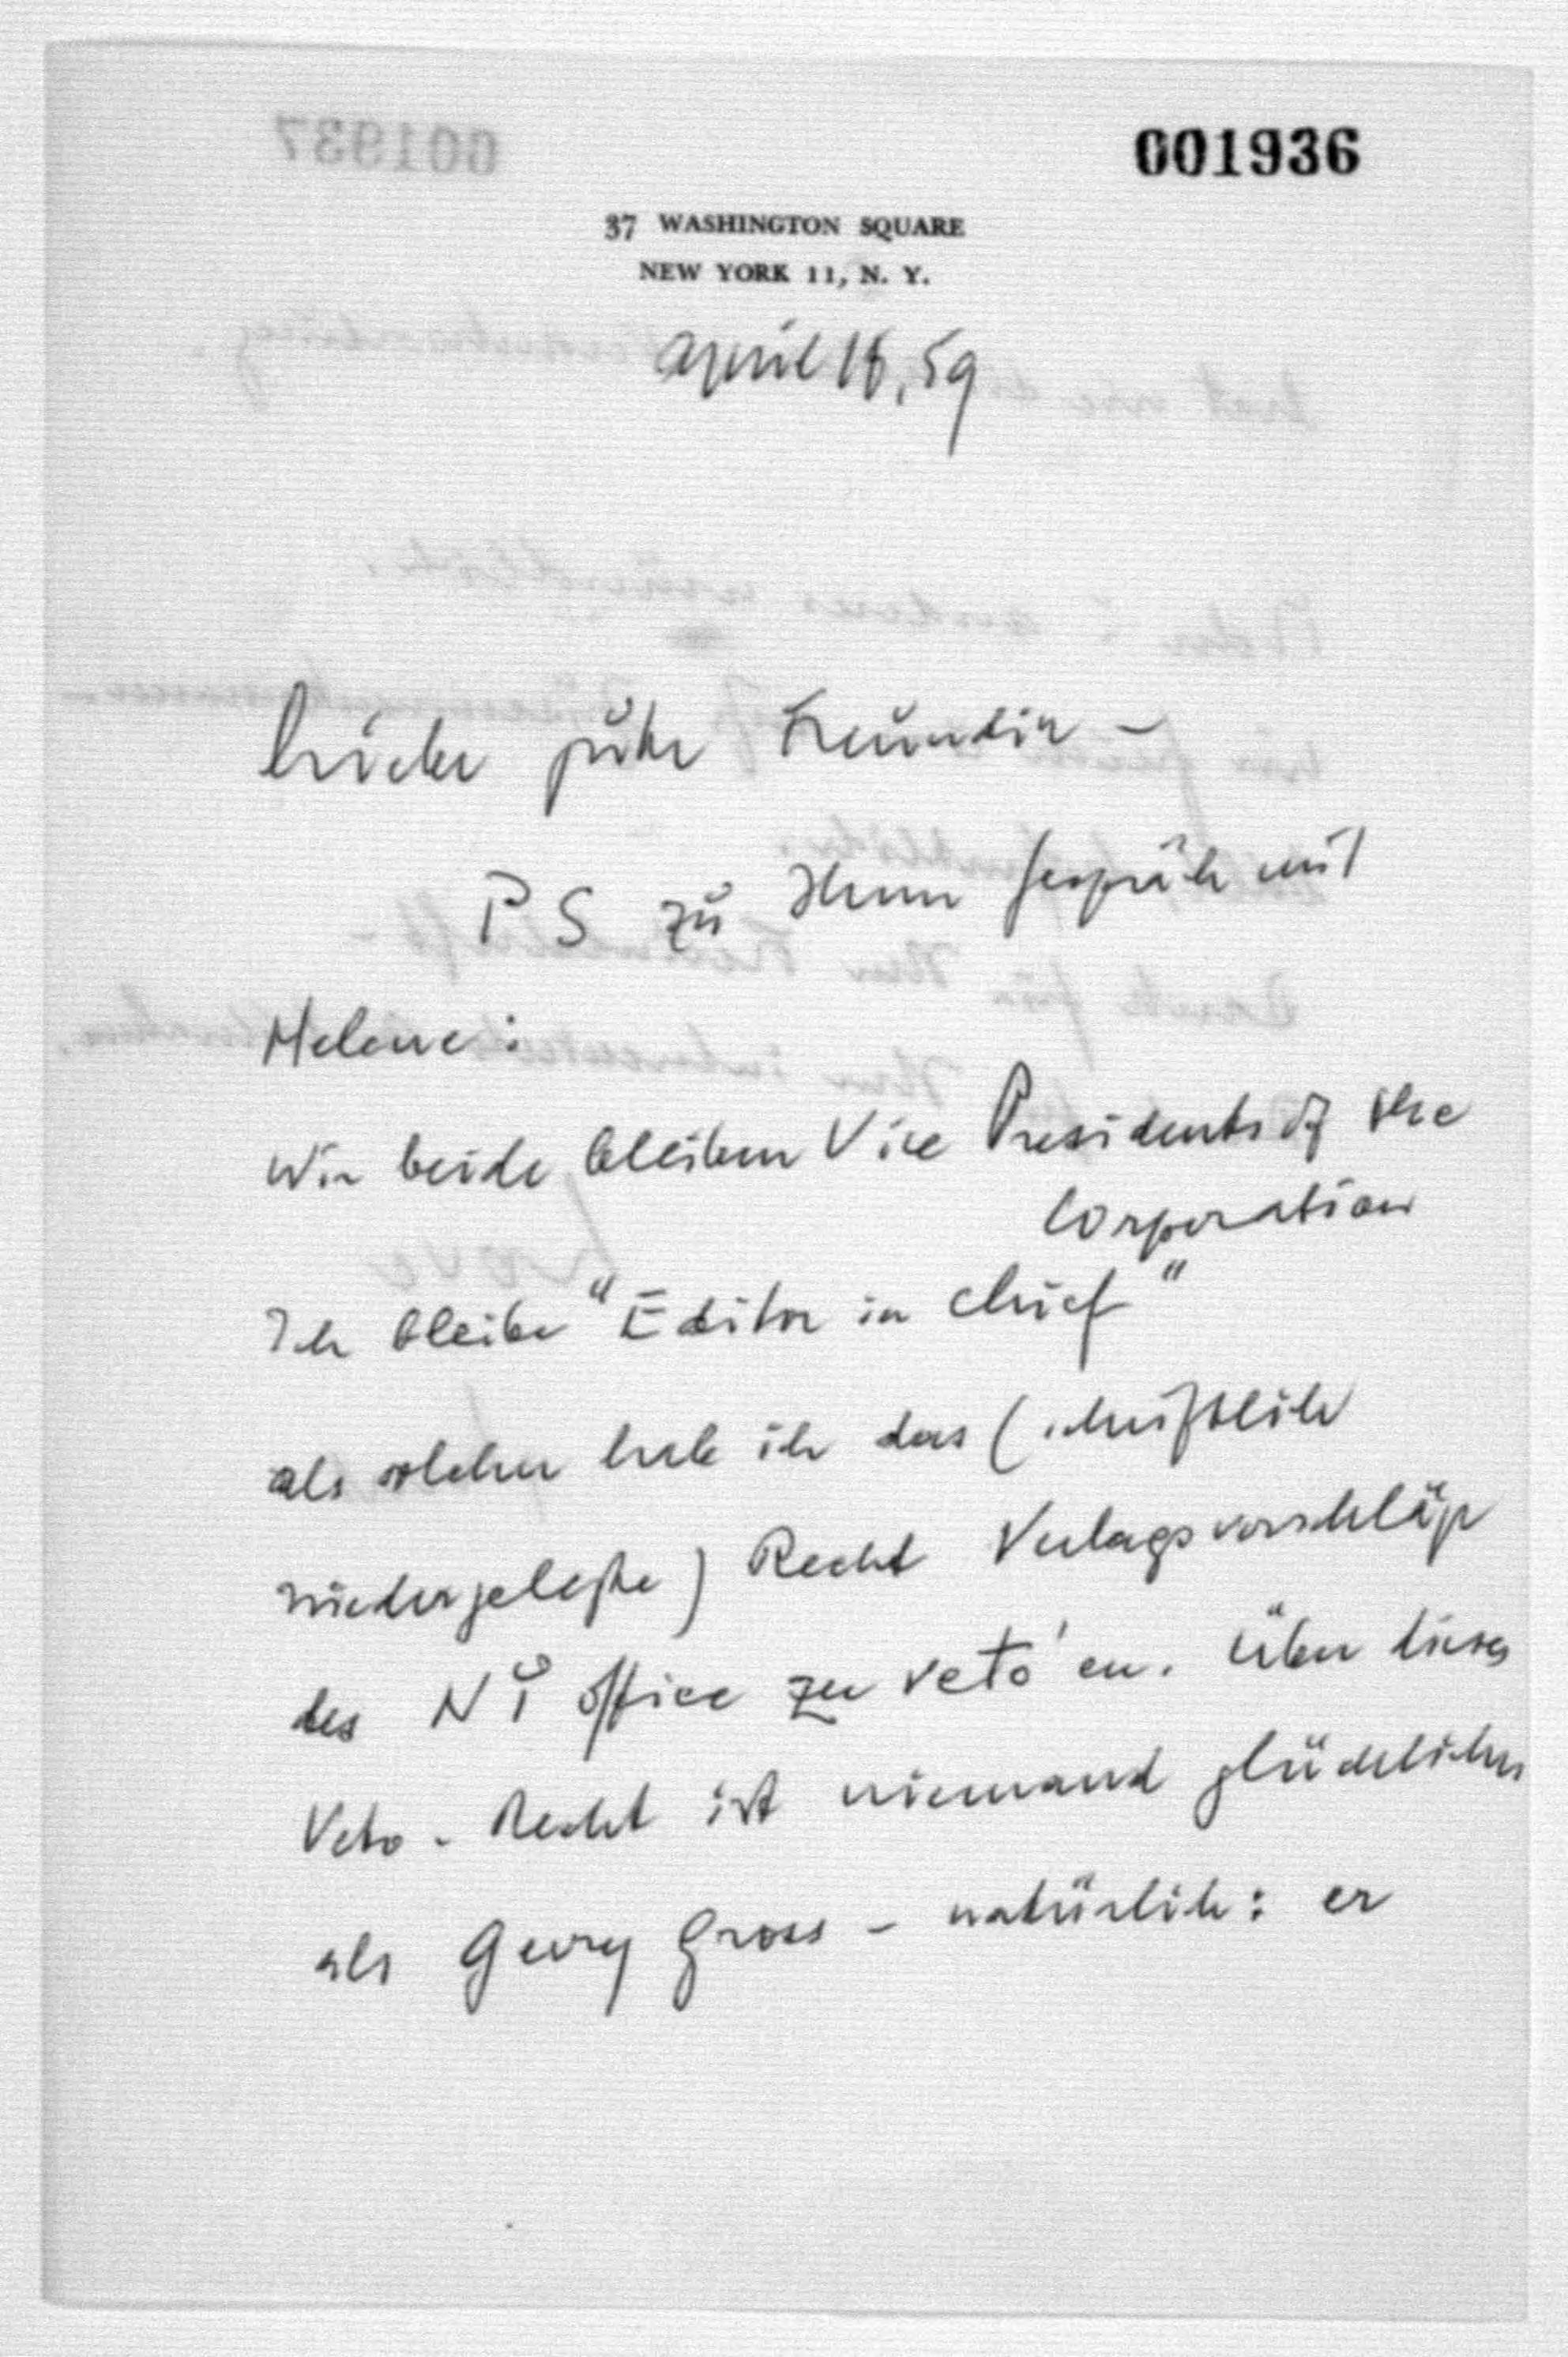 001936
37 WASHINGTON SQUARE
NEW YORK 11, N. Y.
April 18, 59
Liebe gute Freundin –
PS zu Ihrem Gespräch mit
Helene:
Wir beide bleiben Vice Presidents of the
Corporation
Ich bleibe "Editor in Chief"
als solcher habe ich das (schriftlich
niedergelegte) Recht Verlagsvorschläge
des NY office zu veto'en. Über dieses
Veto-Recht ist niemand glücklicher
als Gerry Gross – natürlich: er